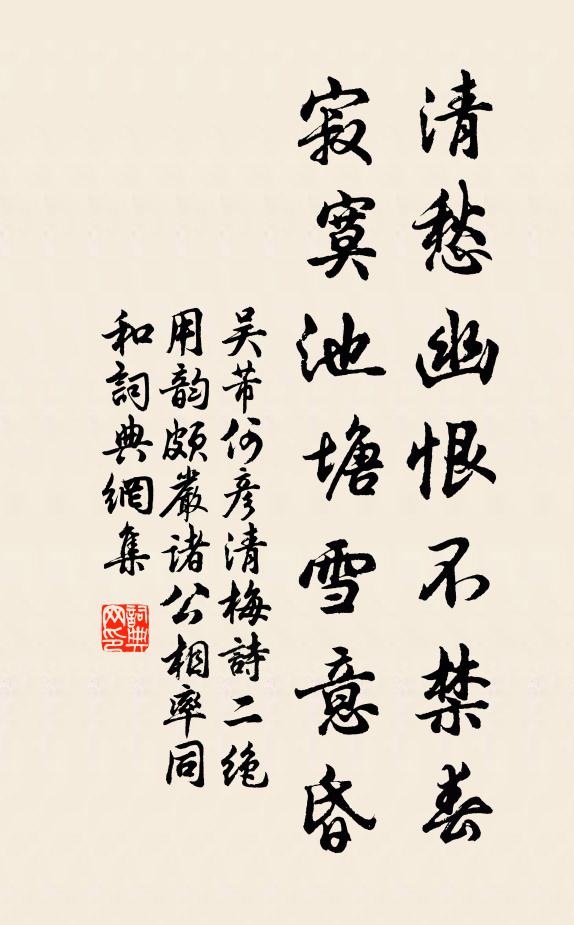 清愁幽恨不禁春
寂寞池塘雪意昏
吴芾何彦清梅詩二绝
用韵頗嚴諸公相率同
和詞典網集
詞典
网印